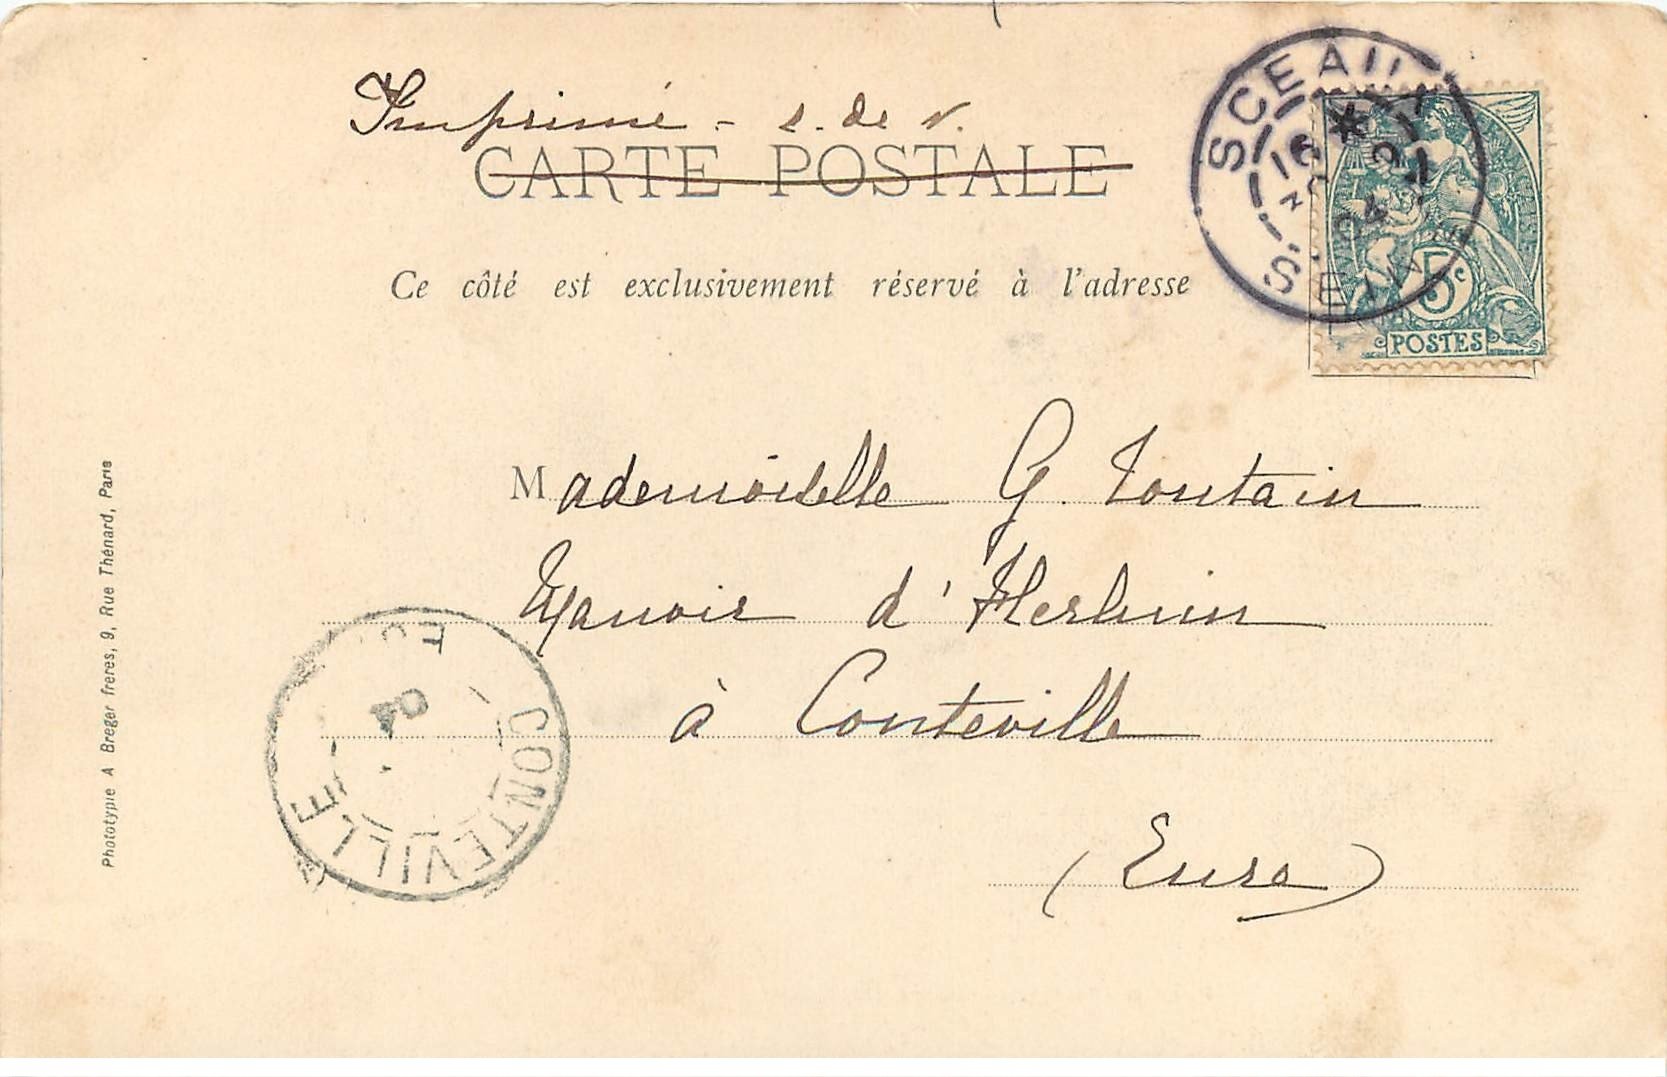 Imprimé - s. de v.
CARTE POSTALE
Ce côté est exclusivement réservé à l'adresse
SCEAUX
16
04
SEINE
5c
POSTES
Mademoiselle G. Toutain
Manoir d'Herluin
à Conteville
(Eure)
CONTEVILLE
04
Phototypie A Breger freres, 9, Rue Thénard, Paris